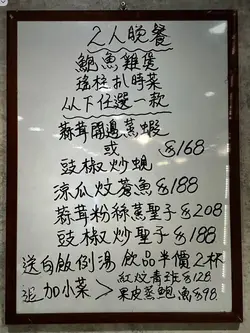 2人晚餐
鮑魚雞煲
瑤柱扒時菜
以下任選一款
蒜茸開邊蒸蝦
或 $168
豉椒炒蜆
涼瓜炆蒼魚$188
蒜茸粉絲蒸聖子$208
豉椒炒聖子$188
送白飯例湯 飲品半價2杯
加小菜> 紅炆 $128
果皮蒸鮑魚$98